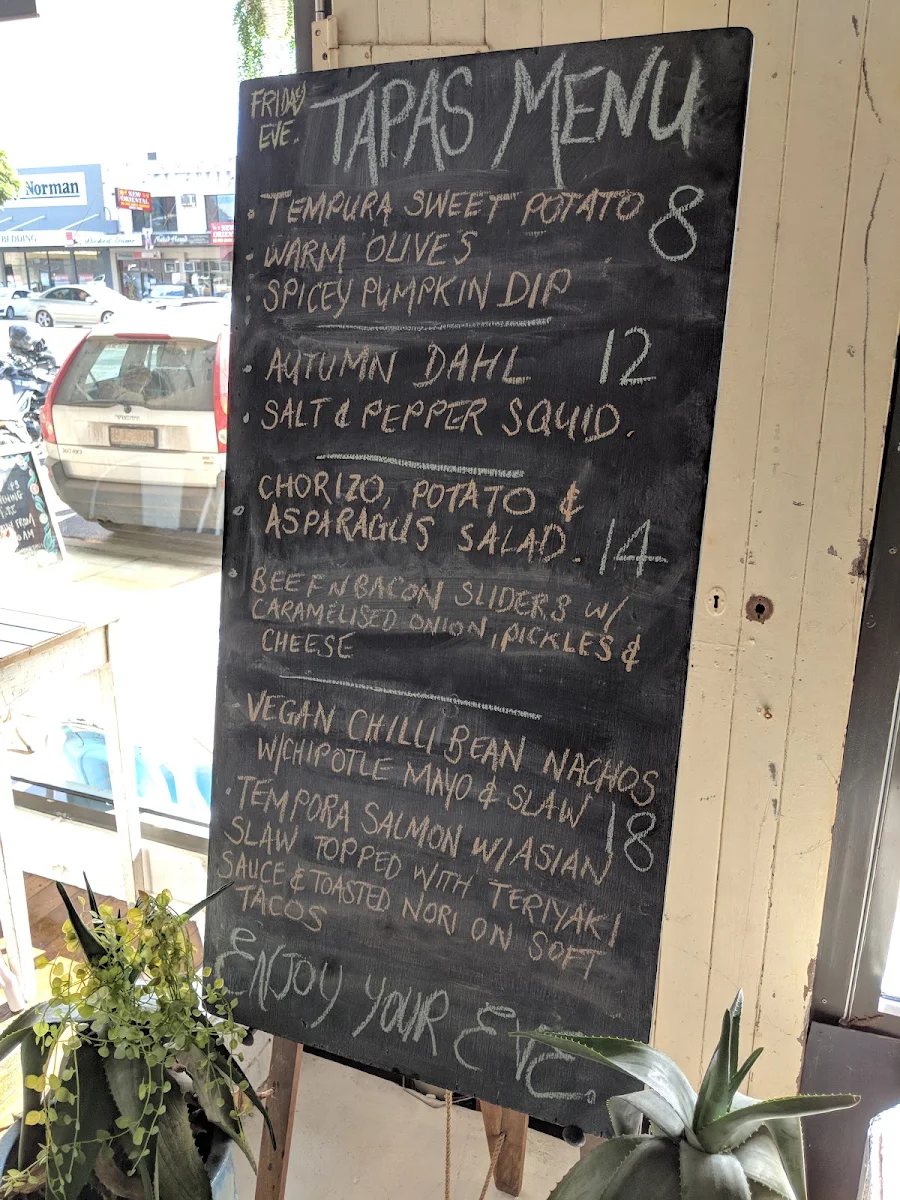 FRIDAY
EVE.
TAPAS MENU
• TEMPURA SWEET POTATO 8
• WARM OLIVES
• SPICEY PUMPKIN DIP
• AUTUMN DAHL 12
• SALT & PEPPER SQUID.
CHORIZO, POTATO &
ASPARAGUS SALAD. 14
BEEF N BACON SLIDERS W/
CARAMELISED ONION, PICKLES &
CHEESE
VEGAN CHILLI BEAN NACHOS
W/CHIPOTLE MAYO & SLAW 18
• TEMPORA SALMON W/ASIAN
SLAW TOPPED WITH TERIYAKI
SAUCE & TOASTED NORI ON SOFT
TACOS
ENJOY YOUR EVE.
Norman
BEDDING
NEW
ORIENTAL